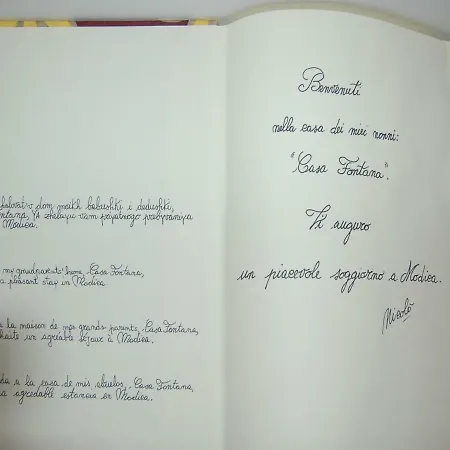 dom moikh babushki i dedushki,
Fontana, Ya zhelayu vam priyatnogo prebyvaniya
Modica.
my grandparents' home, Casa Fontana,
a pleasant stay in Modica.
la maison de mes grands parents, Casa Fontana,
un agréable séjour à Modica.
a la casa de mis abuelos, Casa Fontana,
agradable estancia en Modica.
Benvenuti
nella casa dei miei nonni:
"Casa Fontana".
Vi auguro
un piacevole soggiorno a Modica.
Nicolò